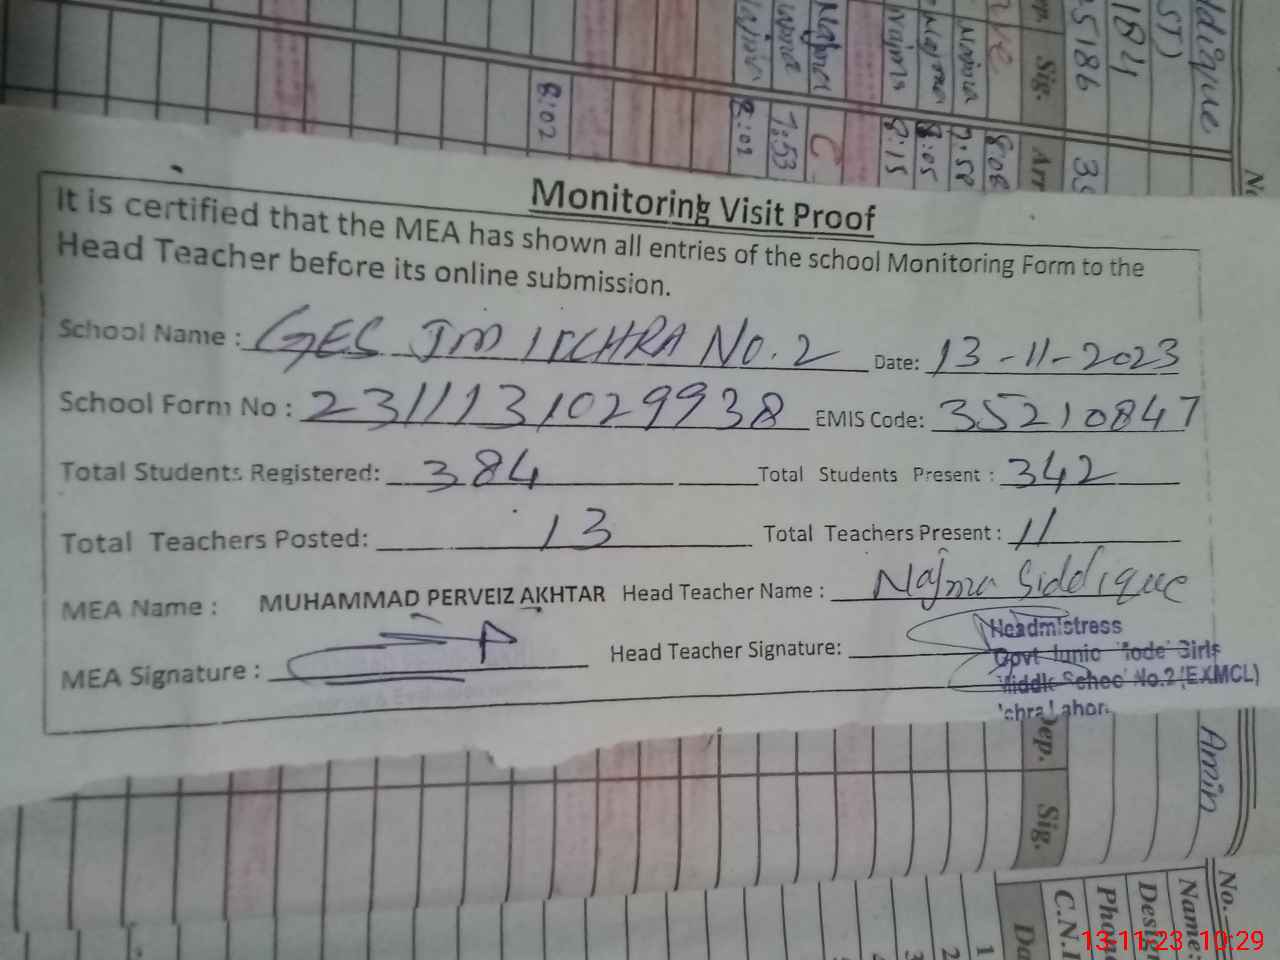 Monitoring Visit Proof
It is certified that the MEA has shown all entries of the school Monitoring Form to the
Head Teacher before its online submission.
School Name : GES JM ITCHRA No. 2 Date: 13-11-2023
School Form No : 2311131029938 EMIS Code: 35210847
Total Students Registered: 384 Total Students Present : 342
Total Teachers Posted: 13 Total Teachers Present : 11
MEA Name : MUHAMMAD PERVEIZ AKHTAR Head Teacher Name : Najma Siddique
MEA Signature : Head Teacher Signature:
Headmistress
Govt Junio Mode Girls
Middle School No.2 (EXMCL)
Ichra Lahor
8:02
Najma 8:02
7:53
Najma C
Najma 8:15
Najma 8:05
Najma 7:58
8:08
Sig. Arr
25186
184
ST)
ddique
Amin
Dep. Sig.
1
2
3
No.
Name:
Desig
Phone
C.N.I
Da
13-11-23 10:29